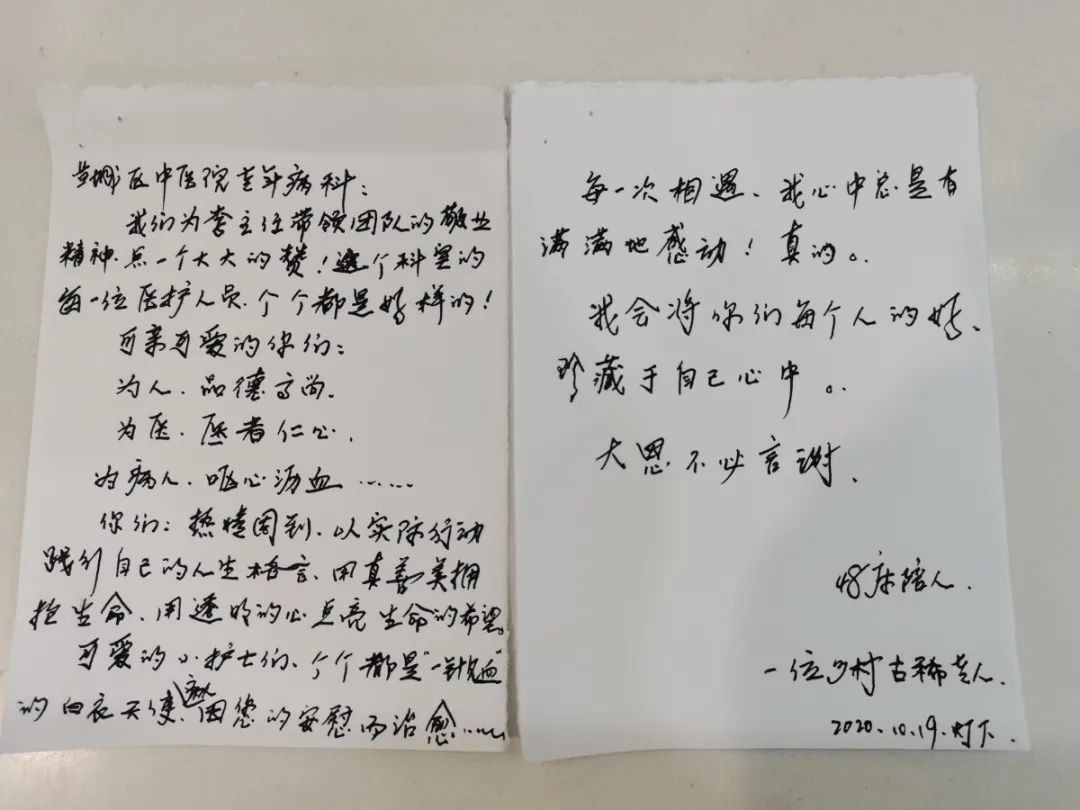 区中医院老年病科：
我们为李主任带领团队的敬业
精神.点一个大大的赞！这个科室的
每一位医护人员.个个都是好样的！
可亲可爱的你们：
为人.品德高尚.
为医.医者仁心.
为病人.呕心沥血……
你们：热情周到.以实际行动
践行自己的人生格言、用真善美拥
抱生命、用透明的心点亮生命的希望。
可爱的小护士们、个个都是"一针见血"
的白衣天使、病人因您的安慰而治愈……
每一次相遇、我心中总是有
满满地感动！真的。
我会将你们每个人的好、
珍藏于自己心中。
大恩不必言谢.
48床陪人.
一位乡村古稀老人.
2020.10.19.灯下.